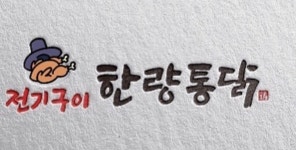 전기구이 한량통닭